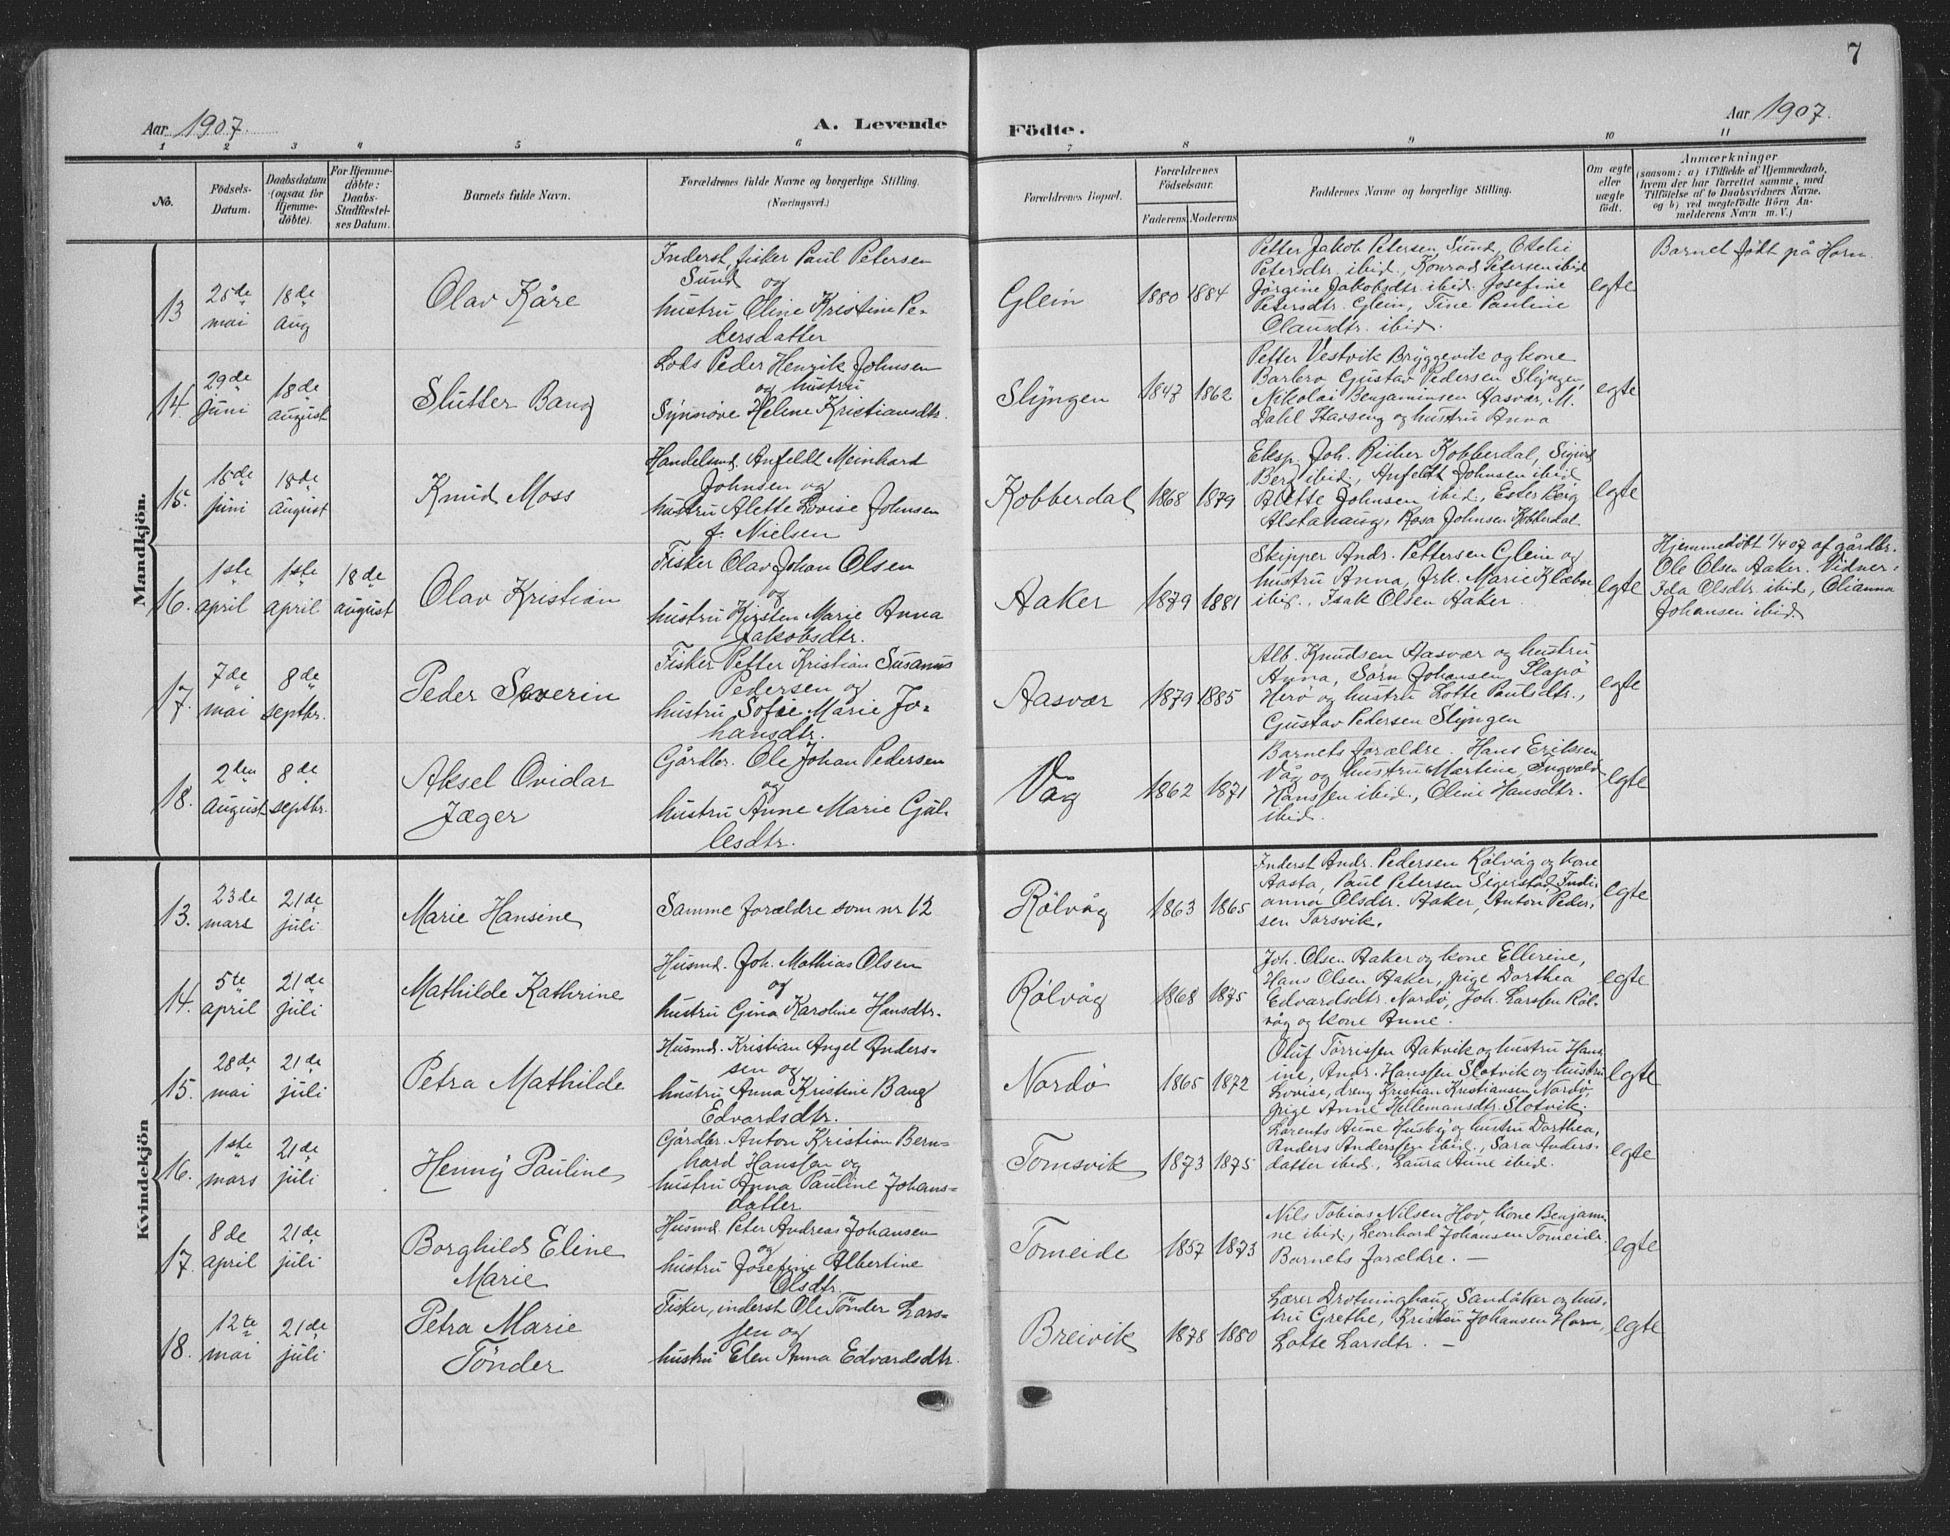 7
Aar 1907.
A. Levende
Födte.
Aar 1907.
1 2 3 4 5 6 7 8 9 10 11
No.
Födsels-
Datum.
Daabsdatum
(ogsaa for
Hjemme-
döbte).
For Hjemme-
döbte:
Daabs-
Stadfæstel-
ses Datum.
Barnets fulde Navn.
Forældrenes fulde Navne og borgerlige Stilling.
(Næringsvei.)
Forældrenes Bopæl.
Forældrenes
Födselsaar.
Faderens Moderens
Faddernes Navne og borgerlige Stilling.
Om ægte
eller
uægte
födt.
Anmærkninger
(saasom: a) i Tilfælde af Hjemmedaab,
hvem der har forrettet samme, med
Tilföielse af to Daabsvidners Navne.
og b) ved uægtefödte Börn An-
melderens Navn m. V.)
Mandkjön.
13
25de
mai
18de
aug
Olav Kåre
Inderst, fisker Paul Petersen
Sund og
hustru Oline Kristine Pe-
dersdatter
Glein
1880 1884
Petter Jakob Petersen Sund, Otelie
Petersdtr. ibid., Konrad Petersen ibid
Jörgine Jakobsdtr. ibid. Josefine
Petersdtr. Glein, Tine Pauline
Olausdtr. ibid.
egte
Barnet født på Horn
14.
29de
juni
18de
august
Slutter Bang
Lods Peder Henrik Johnsen
og hustru
Synnøve Helene Kristiansdtr.
Slyngen
1847 1862
Petter Vestvik Bryggevik og kone
Barbro, Gustav Pedersen Slyngen,
Nikolai Benjaminsen Aasvær, M.
Dahl Stavseng og hustru Anna
egte
15.
18de
juni
18de
august
Knud Moss
Handelsmd. Anfeldt Meinhard
Johnsen og
hustru Alette Lovise Johnsen
f. Nielsen
Kobberdal
1868 1879
Eksp. Joh. Risher Kobberdal, Sigurd
Berg ibid, Anfeldt Johnsen ibid,
Alette Johnsen ibid, Ester Berg
Alstahaug, Rosa Johnsen Kobberdal
egte
16.
1ste
april
1ste
april
18de
august
Olav Kristian
Fisker Olav Johan Olsen
og
hustru Kirsten Marie Anna
Jakobsdtr.
Aaker
1879 1881
Skipper Andr. Pettersen Glein og
hustru Anna, frk. Marie Klæbo
ibid., Isak Olsen Aaker.
egte
Hjemmedöbt 1/4 07 af gårdbr.
Ole Olsen Aaker. Vidner:
Ida Olsdtr. ibid, Olianna
Johansen ibid
17.
7de
mai
8de
septbr.
Peder Severin
Fisker Petter Kristian Susanus
Pedersen og
hustru Sofie Marie Jo-
hansdtr.
Aasvær
1879 1885
Alb. Knudsen Aasvær og hustru
Anna, Sørn Johansen Slapö
Herø og hustru Lotte Paulsdtr.,
Gustav Pedersen Slyngen
egte
18.
2den
august
8de
septbr.
Aksel Ovidar
Jæger
Gårdbr. Ole Johan Pedersen
og
hustru Anne Marie Gul-
lesdtr.
Våg
1862 1871
Barnets forældre. Hans Eriksen
Våg og hustru Martine, Ingvald
Hanssen ibid., Oline Hansdtr.
ibid.
egte
Kvindekjön
13.
23de
mars
21de
juli
Marie Hansine
Samme forældre som nr 12
Rölvåg
1863 1865
Inderst Andr. Pedersen Rölvåg og kone
Aasta, Paul Petersen Sigerstad, Indi-
anna Olsdtr. Aaker, Anton Peder-
sen Torsvik.
egte
14.
5te
april
21de
juli
Mathilde Kathrine
Husmd. Joh. Mathias Olsen
og
hustru Gina Karoline Hansdtr.
Rölvåg
1868 1875
Joh. Olsen Aaker og kone Ellerine,
Hans Olsen Aaker, pige Dorthea
Edvardsdtr. Nordö, Joh. Larssen Röl-
våg og kone Anne.
egte
15.
28de
mai
21de
juli
Petra Mathilde
Husmd. Kristian Angel Anders-
sen og
hustru Anna Kristine Bang
Edvardsdtr.
Nordö
1865 1872
Oluf Törrissen Aakvik og hustru Hans-
ine, Andr. Hanssen Slotvik og hustru
Lovise, dreng Kristian Kristiansen Nordö,
pige Anne Hillemansdtr. Slotvik.
egte
16.
1ste
mars
21de
juli
Henny Pauline
Gårdbr. Anton Kristian Bern-
hard Hanssen og
hustru Anna Pauline Johans-
datter
Tomsvik
1873 1875
Lorents Aune Husby og hustru Dorthea,
Anders Anderssen ibid., Sara Anders-
datter ibid., Laura Aune ibid.
egte
17.
8de
april
21de
juli
Borghild Eline
Marie
Husmd. Peter Andreas Johansen
og
hustru Josefine Albertine
Olsdtr.
Tomeide
1857 1873
Nils Tobias Nilsen Hov, kone Benjami-
ne ibid, Leonhard Johansen Tomeide.
Barnets forældre. —
egte
18.
12te
mai
21de
juli
Petra Marie
Tönder
Fisker, inderst Ole Tönder Lars-
sen og
hustru Elen Anna Edvardsdtr.
Breivik
1878 1880
Lærer Drotninghaug Sandåker og hus-
tru Grethe, Kristen Johansen Horn,
Lotte Larsdtr. —
egte